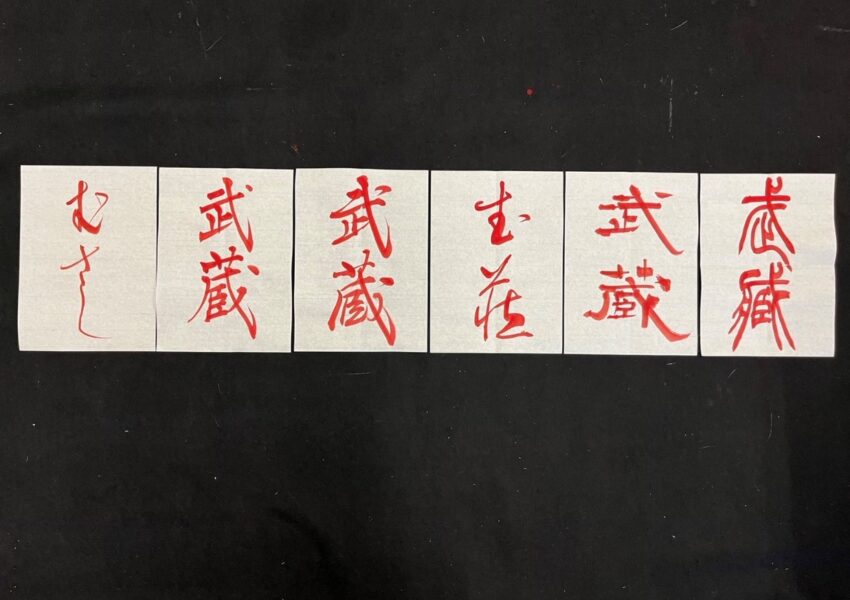 武蔵
武蔵
武蔵
武蔵
武蔵
むさし